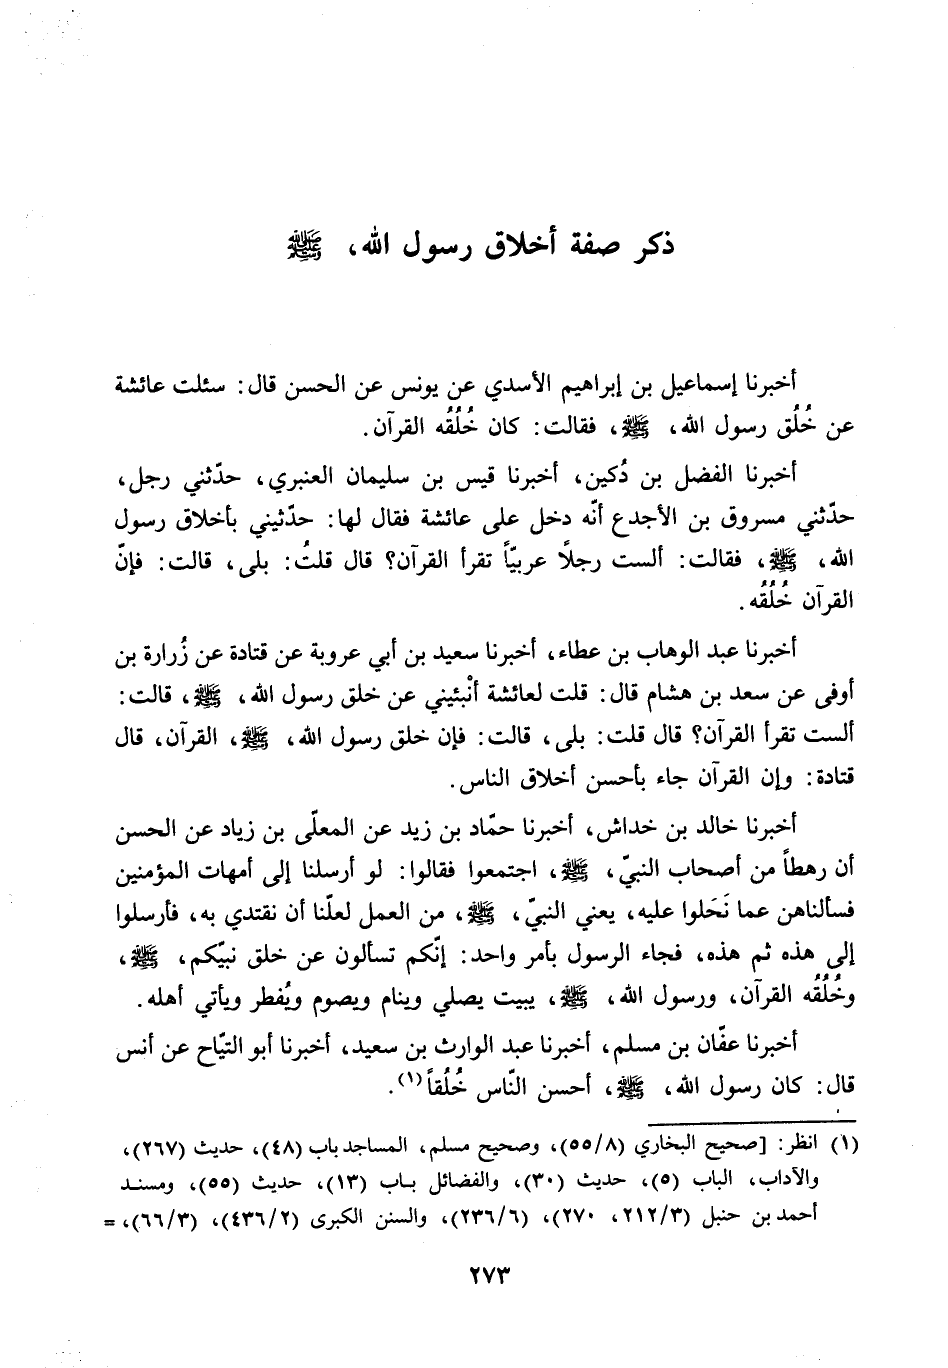 ذكر صفة أخلاق رسول الله، ﷺ
أخبرنا إسماعيل بن إبراهيم الأسدي عن يونس عن الحسن قال: سئلت عائشة
عن خُلُق رسول الله، ﷺ، فقالت: كان خُلُقُه القرآن.
أخبرنا الفضل بن دُكين، أخبرنا قيس بن سليمان العنبري، حدّثني رجل،
حدّثني مسروق بن الأجدع أنّه دخل على عائشة فقال لها: حدّثيني بأخلاق رسول
الله، ﷺ، فقالت: ألست رجلاً عربيّاً تقرأ القرآن؟ قال قلتُ: بلى، قالت: فإنّ
القرآن خُلُقُه.
أخبرنا عبد الوهاب بن عطاء، أخبرنا سعيد بن أبي عروبة عن قتادة عن زُرارة بن
أوفى عن سعد بن هشام قال: قلت لعائشة أنْبئيني عن خلق رسول الله، ﷺ، قالت:
ألست تقرأ القرآن؟ قال قلت: بلى، قالت: فإن خلق رسول الله، ﷺ، القرآن، قال
قتادة: وإن القرآن جاء بأحسن أخلاق الناس.
أخبرنا خالد بن خداش، أخبرنا حمّاد بن زيد عن المعلّى بن زياد عن الحسن
أن رهطاً من أصحاب النبيّ، ﷺ، اجتمعوا فقالوا: لو أرسلنا إلى أمهات المؤمنين
فسألناهن عما نَحَلوا عليه، يعني النبيّ، ﷺ، من العمل لعلّنا أن نقتدي به، فأرسلوا
إلى هذه ثم هذه، فجاء الرسول بأمر واحد: إنّكم تسألون عن خلق نبيّكم، ﷺ،
وخُلُقُه القرآن، ورسول الله، ﷺ، يبيت يصلي وينام ويصوم ويُفطر ويأتي أهله.
أخبرنا عفّان بن مسلم، أخبرنا عبد الوارث بن سعيد، أخبرنا أبو التيّاح عن أنس
قال: كان رسول الله، ﷺ، أحسن النّاس خُلُقاً(١).
(١) انظر: [صحيح البخاري (٥٥/٨)، وصحيح مسلم، المساجد باب (٤٨)، حديث (٢٦٧)،
والآداب، الباب (٥)، حديث (٣٠)، والفضائل باب (١٣)، حديث (٥٥)، ومسند
أحمد بن حنبل (٢١٢/٣، ٢٧٠)، (٢٣٦/٦)، والسنن الكبرى (٤٣٦/٢)، (٦٦/٣)، =
٢٧٣